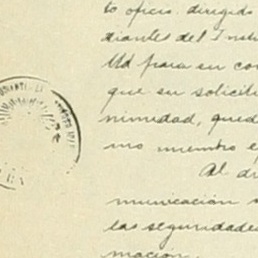 to oficio. dirigido
diantes del Inst
Ud para su con
que su solicit
nimidad, qued
mo miembro e
Al d
municacion s
las seguridades
macion.